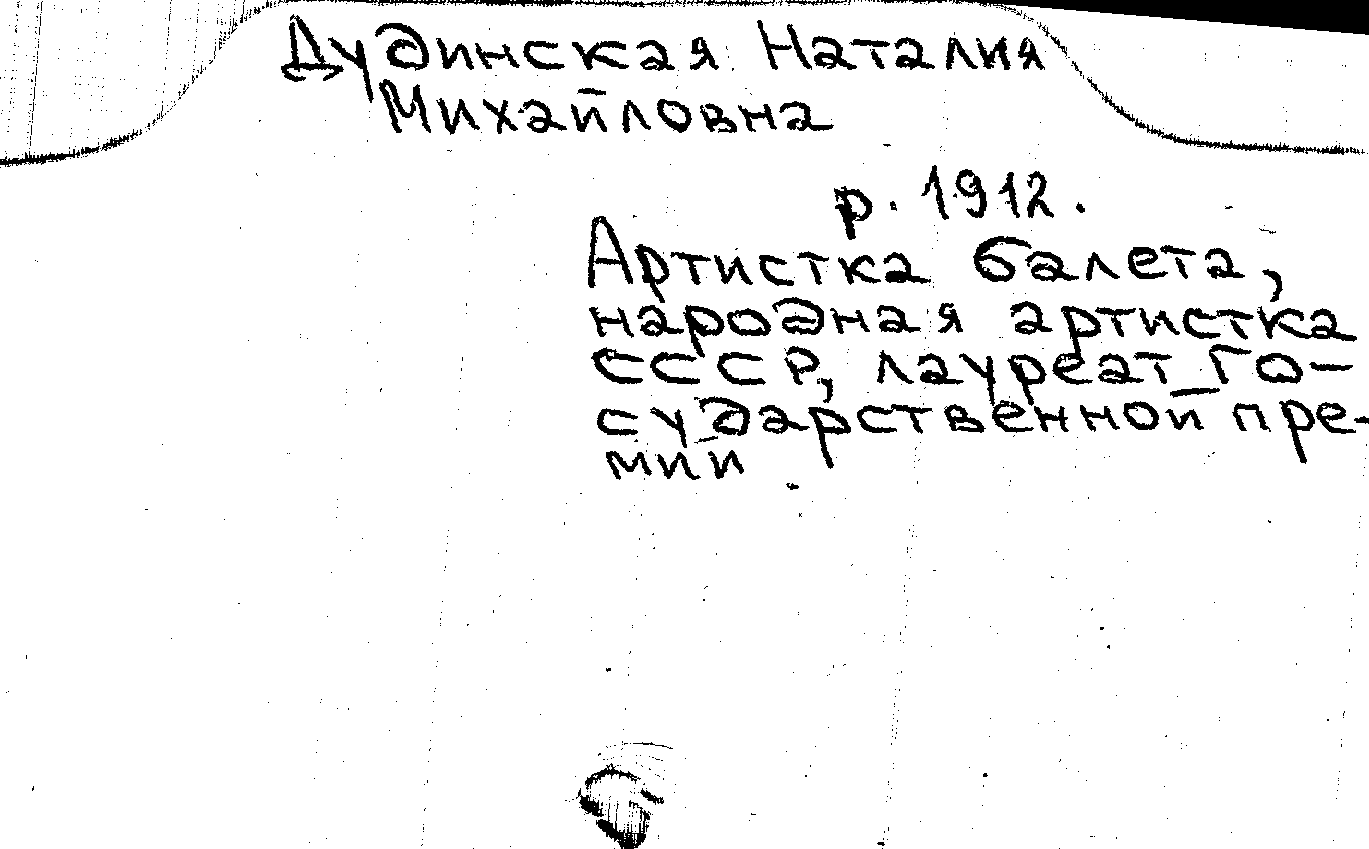 Дудинская Наталия
Михайловна
р. 1912.
Артистка балета,
народная артистка
СССР, лауреат Го-
сударственной пре-
мии